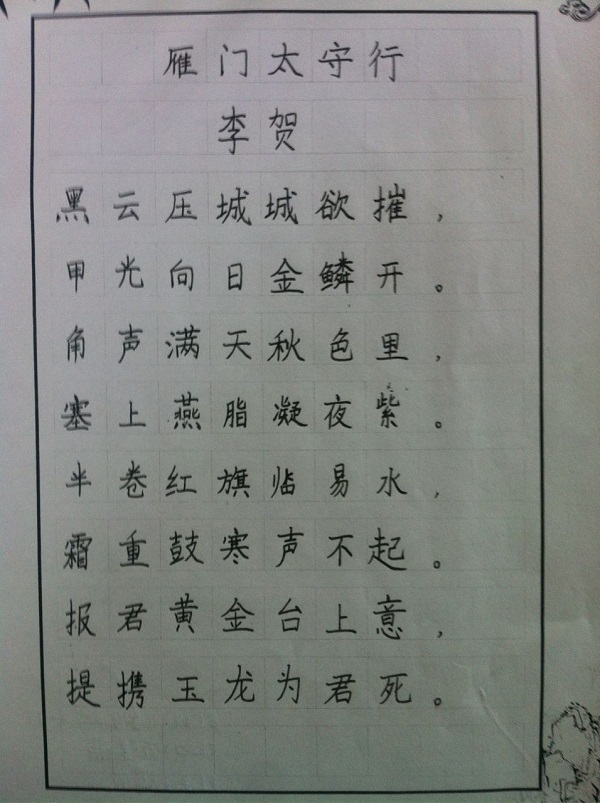 雁门太守行
李贺
黑云压城城欲摧，
甲光向日金鳞开。
角声满天秋色里，
塞上燕脂凝夜紫。
半卷红旗临易水，
霜重鼓寒声不起。
报君黄金台上意，
提携玉龙为君死。